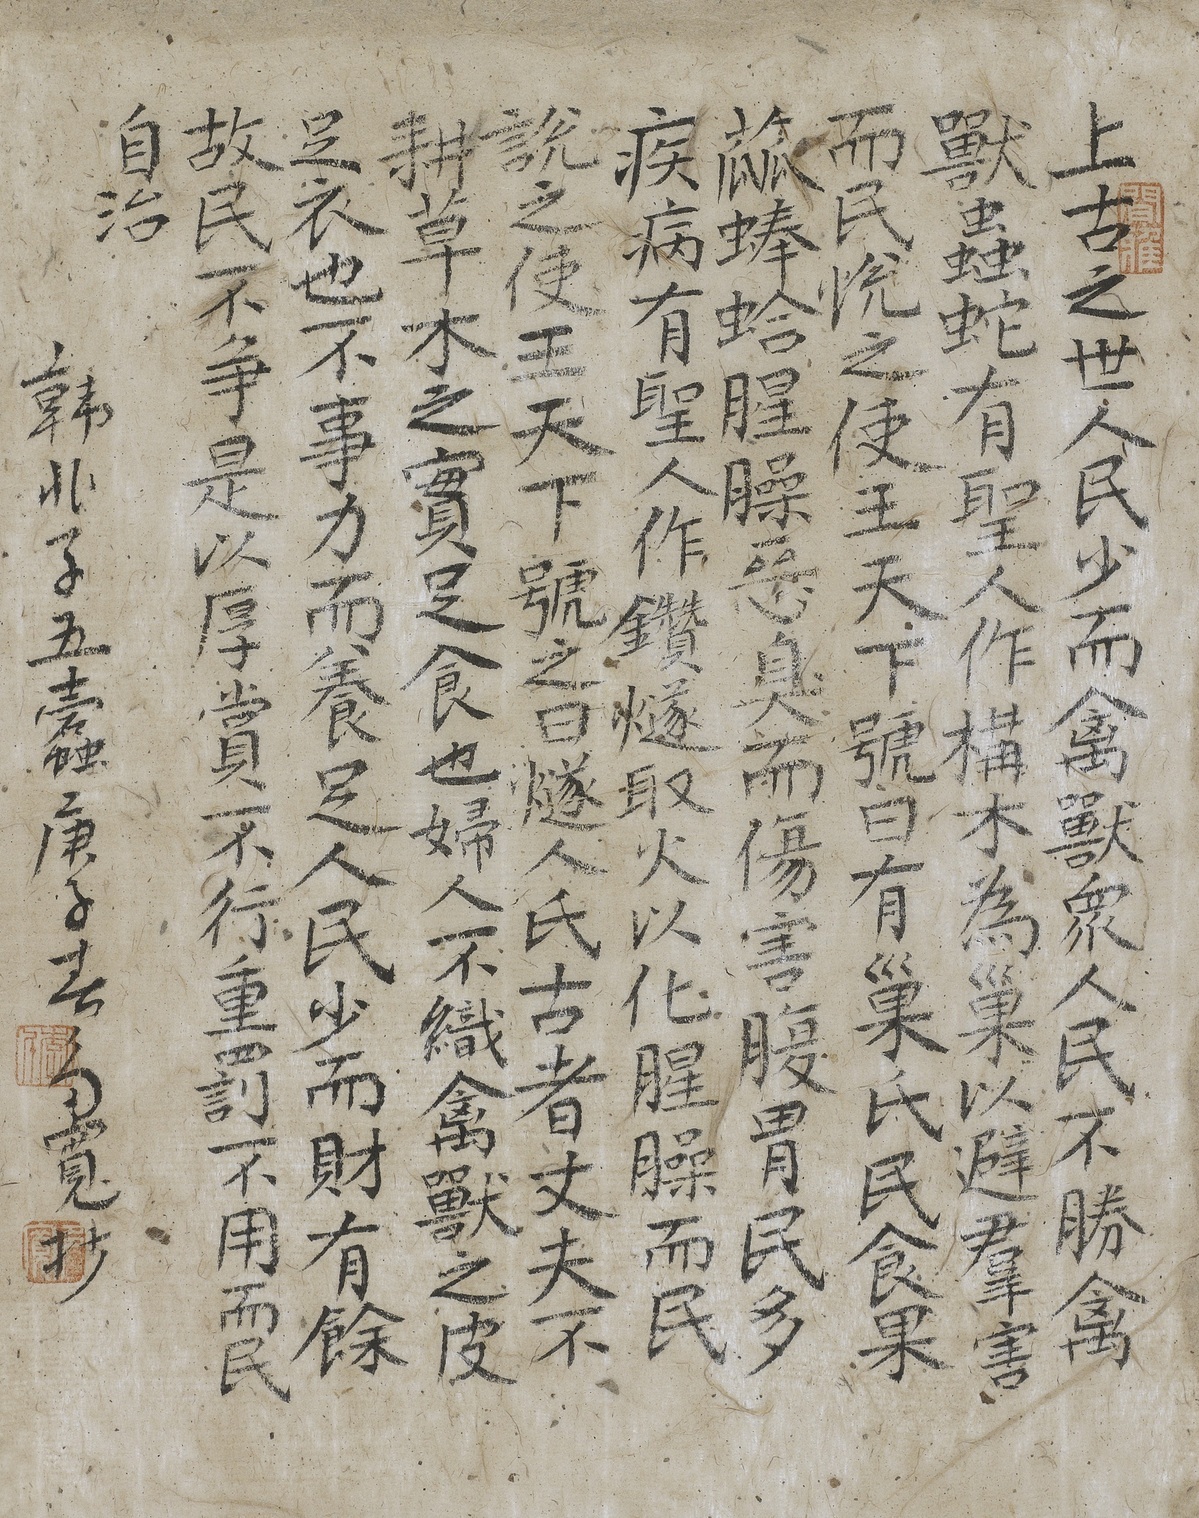 上古之世人民少而禽獸衆人民不勝禽
獸蟲蛇有聖人作構木為巢以避羣害
而民悅之使王天下號曰有巢氏民食果
蓏蜯蛤腥臊惡臭而傷害腹胃民多
疾病有聖人作鑽燧取火以化腥臊而民
說之使王天下號之曰燧人氏古者丈夫不
耕草木之實足食也婦人不織禽獸之皮
足衣也不事力而養足人民少而財有餘
故民不爭是以厚賞不行重罰不用而民
自治
韓非子五蠹庚子春 寬抄